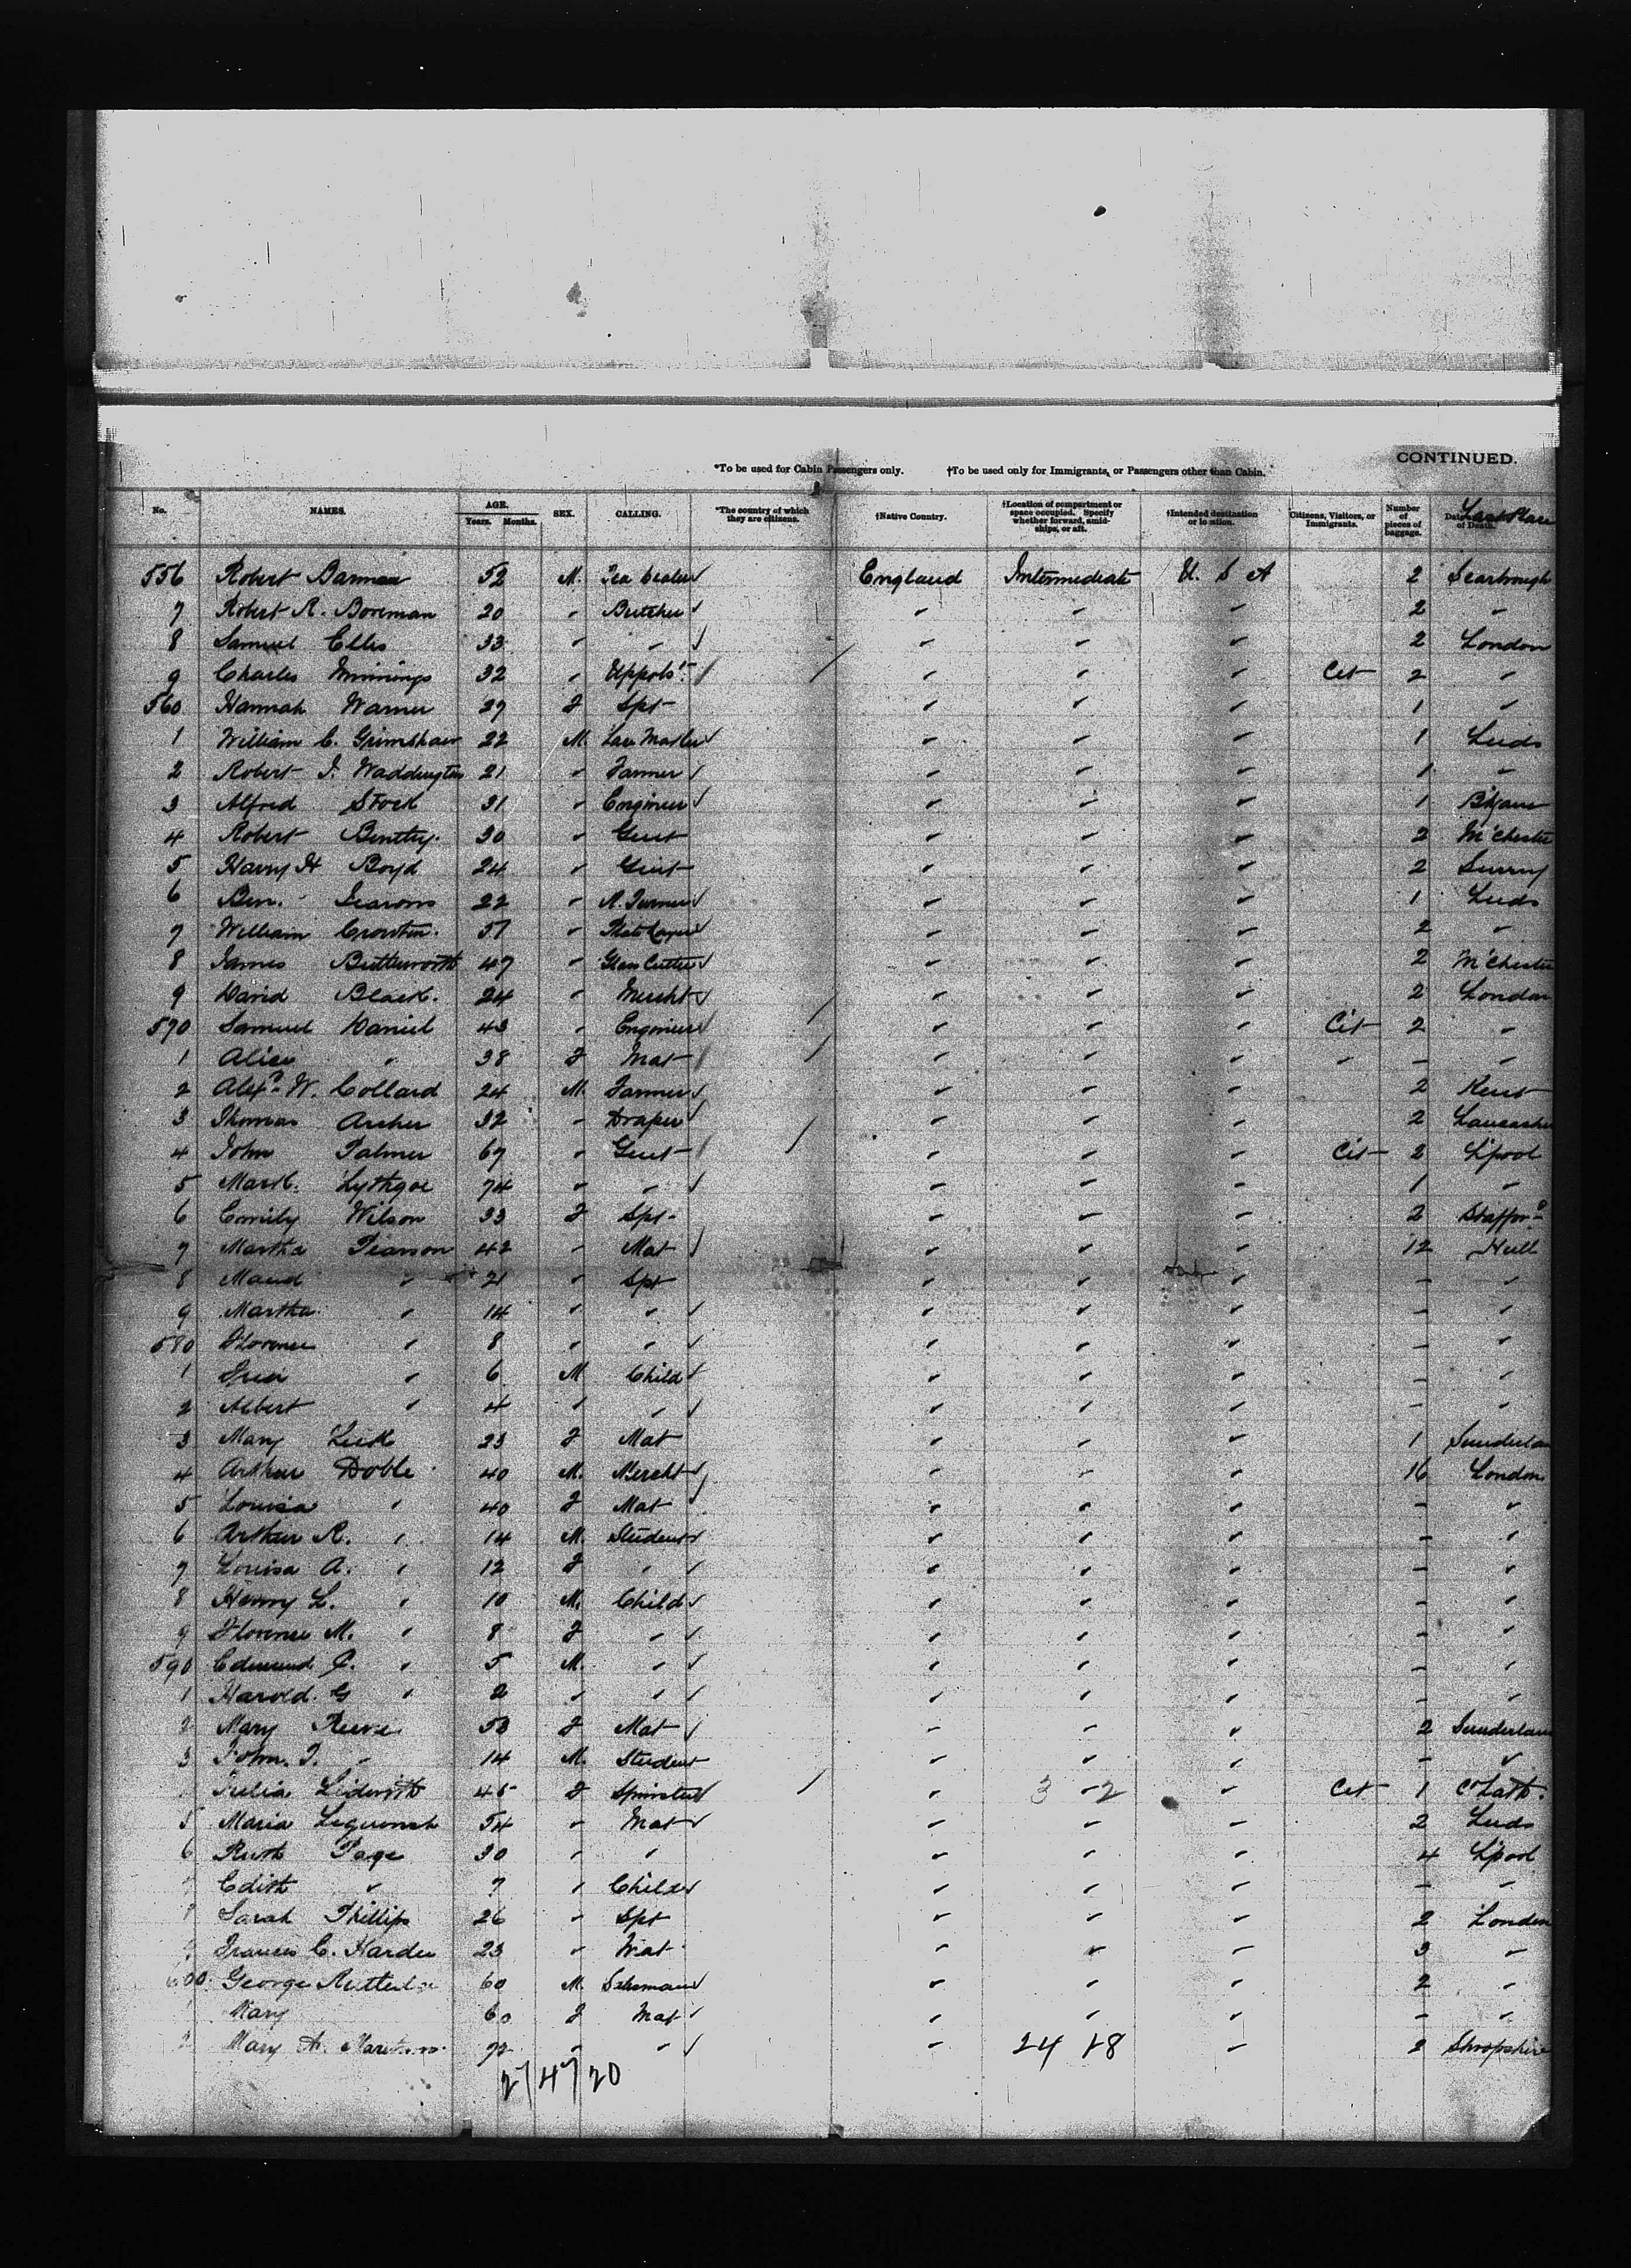 CONTINUED.
*To be used for Cabin Passengers only. †To be used only for Immigrants, or Passengers other than Cabin.
No. NAMES. AGE. Years. Months. SEX. CALLING. *The country of which they are citizens. †Native Country. †Location of compartment or space occupied. Specify whether forward, amidships, or aft. †Intended destination or location. Citizens, Visitors, or Immigrants. Number of pieces of baggage. Last Place of Death.
556 Robert 52 M. Tea Dealer England Intermediate U. S A 2 Scarbrough
7 Robert R. Boreman 20 " Butcher " " " 2 "
8 Samuel Ellis 33 " " " " " 2 London
9 Charles 32 " Uppols " " " Cit 2 "
560 Hannah Warner 27 F Spt " " " 1 "
1 William C. Grimshaw 22 M. " " " 1 Leeds
2 Robert J. Waddington 21 " Farmer " " " 1 "
3 Alfred Stock 31 " Engineer " " " 1
4 Robert Bentley. 30 " Gent " " " 2 M'chester
5 Harry H Boyd 24 " Gent " " " 2 Surry
6 Ben. 22 " " " " 1 Leeds
7 William 51 " " " " 2 "
8 James Butterworth 47 " Glass Cutter " " " 2 M'chester
9 David Black. 24 " Mercht " " " 2 London
570 Samuel Daniel 43 " Engineer " " " Cit 2 "
1 Alice " 38 F Mat " " " " - "
2 W. Collard 24 M. Farmer " " " 2 Kent
3 Thomas Archer 32 " Draper " " " 2
4 John Palmer 67 " Gent " " " Cit 2 L'pool
5 Lythgoe 74 " " " " " 1 "
6 Emily Wilson 33 F Spt " " " 2
7 Martha Pearson 42 " Mat " " " 12 Hull
8 Maud " 21 " Spt " " " - "
9 Martha " 14 " " " " " - "
580 Florence " 8 " " " " " - "
1 " 6 M Child " " " - "
2 Albert " 4 " " " " " - "
3 Mary 23 F Mat " " " 1
4 Arthur Doble 40 M. Mercht " " " 16 London
5 Louisa " 40 F Mat " " " - "
6 Arthur R. " 14 M. Student " " " - "
7 Louisa A. " 12 F " " " " - "
8 Henry L. " 10 M. Child " " " - "
9 Florence M. " 8 F " " " " - "
590 Edmund C. " 5 M. " " " " - "
1 Harold. G " 2 " " " " " - "
2 Mary 53 F Mat " " " 2
3 John. T. " 14 M. Student " " " - "
Julia 45 F Spinster " 3 - 2 " Cit 1
5 Maria 54 " Mat " " " 2 Leeds
6 Ruth Page 30 " " " " " 4 L'pool
Edith " 7 " Child " " " - "
Sarah Phillips 26 " Spt " " " 2 London
Frances C. 23 " Mat " " " 3 "
600 George 60 M. " " " 2 "
Mary 60 F Mat " " " - "
Mary A. " " " 24 18 " 2 Shropshire
27/47/20